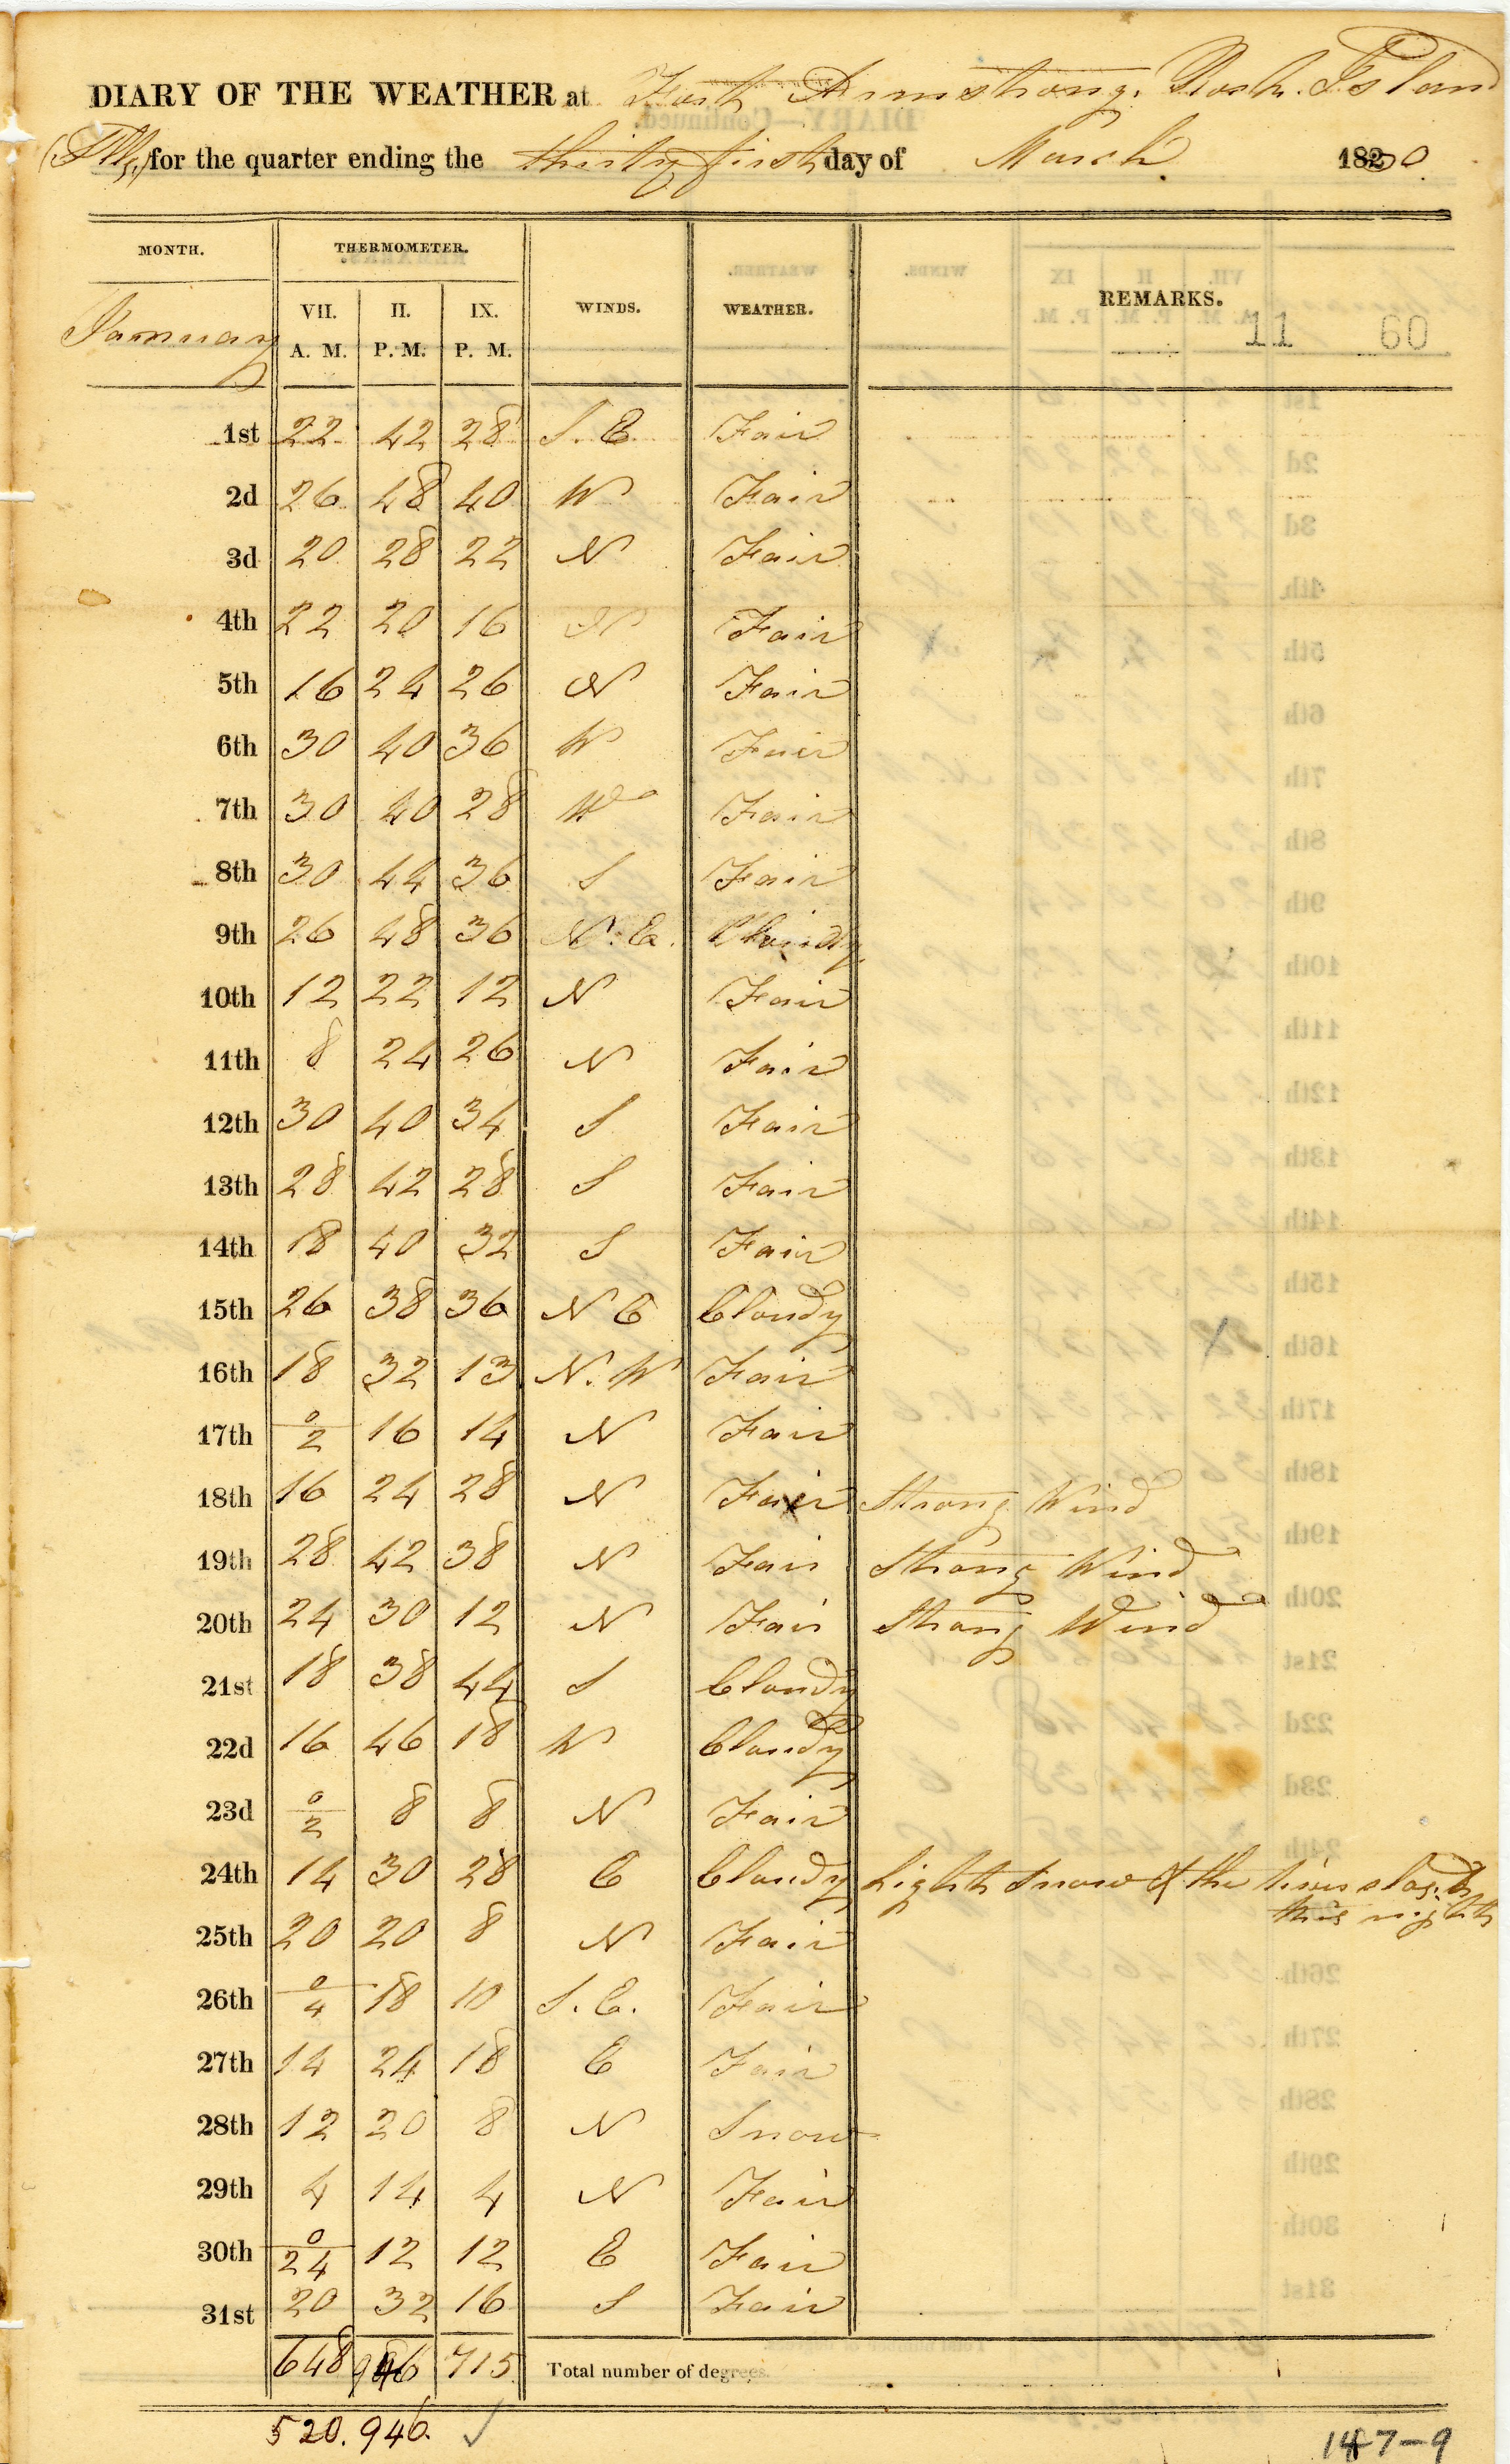 DIARY OF THE WEATHER at Fort Armstrong. Rock. Island
(Ills,) for the quarter ending the thirty first day of March. 1820
MONTH. THERMOMETER. WINDS. WEATHER. REMARKS.
January VII. II. IX.
A. M. P. M. P. M. 11 60
1st 22 42 28 S. E. Fair
2d 26 48 40 W Fair
3d 20 28 22 N Fair
4th 22 20 16 N Fair
5th 16 24 26 N Fair
6th 30 40 36 W Fair
7th 30 40 28 W Fair
8th 30 44 36 S Fair
9th 26 48 36 N. E. Cloudy
10th 12 22 12 N Fair
11th 8 24 26 N Fair
12th 30 40 34 S Fair
13th 28 42 28 S Fair
14th 18 40 32 S Fair
15th 26 38 36 N E Cloudy
16th 18 32 13 N. W Fair
17th 0/2 16 14 N Fair
18th 16 24 28 N Fair Strong Wind
19th 28 42 38 N Fair Strong Wind
20th 24 30 12 N Fair Strong Wind
21st 18 38 44 S Cloudy
22d 16 46 18 W Cloudy
23d 0/2 8 8 N Fair
24th 14 30 28 E Cloudy Light Snow & the river
this night
25th 20 20 8 N Fair
26th 0/4 18 10 S. E. Fair
27th 14 24 18 E Fair
28th 12 20 8 N Snow
29th 4 14 4 N Fair
30th 0/24 12 12 E Fair
31st 20 32 16 S Fair
648 946 715 Total number of degrees.
520. 946. ✓
147-9